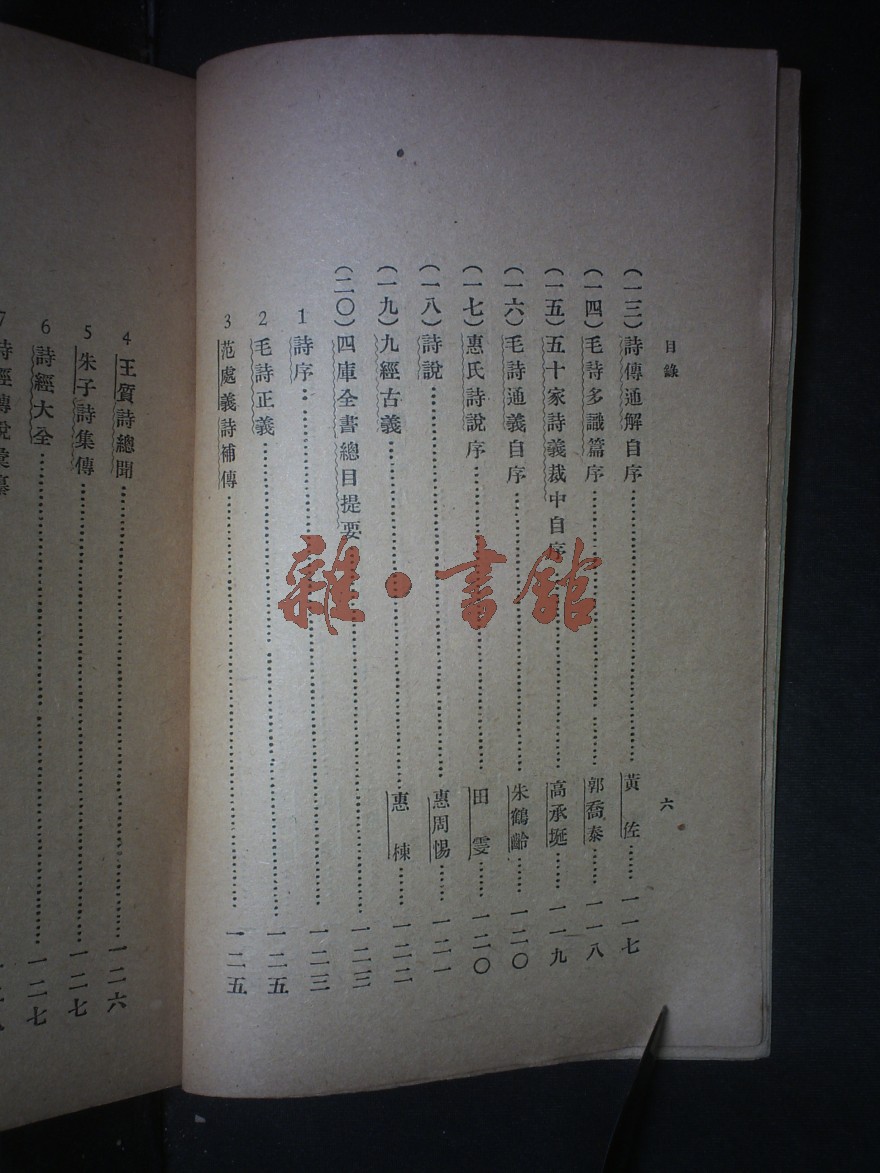 目錄
六
（一三）詩傳通解自序……黃佐……一一七
（一四）毛詩多識篇序……郭喬泰……一一八
（一五）五十家詩義裁中自序……高承埏……一一九
（一六）毛詩通義自序……朱鶴齡……一二〇
（一七）惠氏詩說序……田雯……一二〇
（一八）詩說……惠周惕……一二一
（一九）九經古義……惠棟……一二二
（二〇）四庫全書總目提要……一二三
1 詩序……一二三
2 毛詩正義……一二五
3 范處義詩補傳……一二五
4 王質詩總聞……一二六
5 朱子詩集傳……一二七
6 詩經大全……一二七
7 詩經傳說彙纂
雜·書館